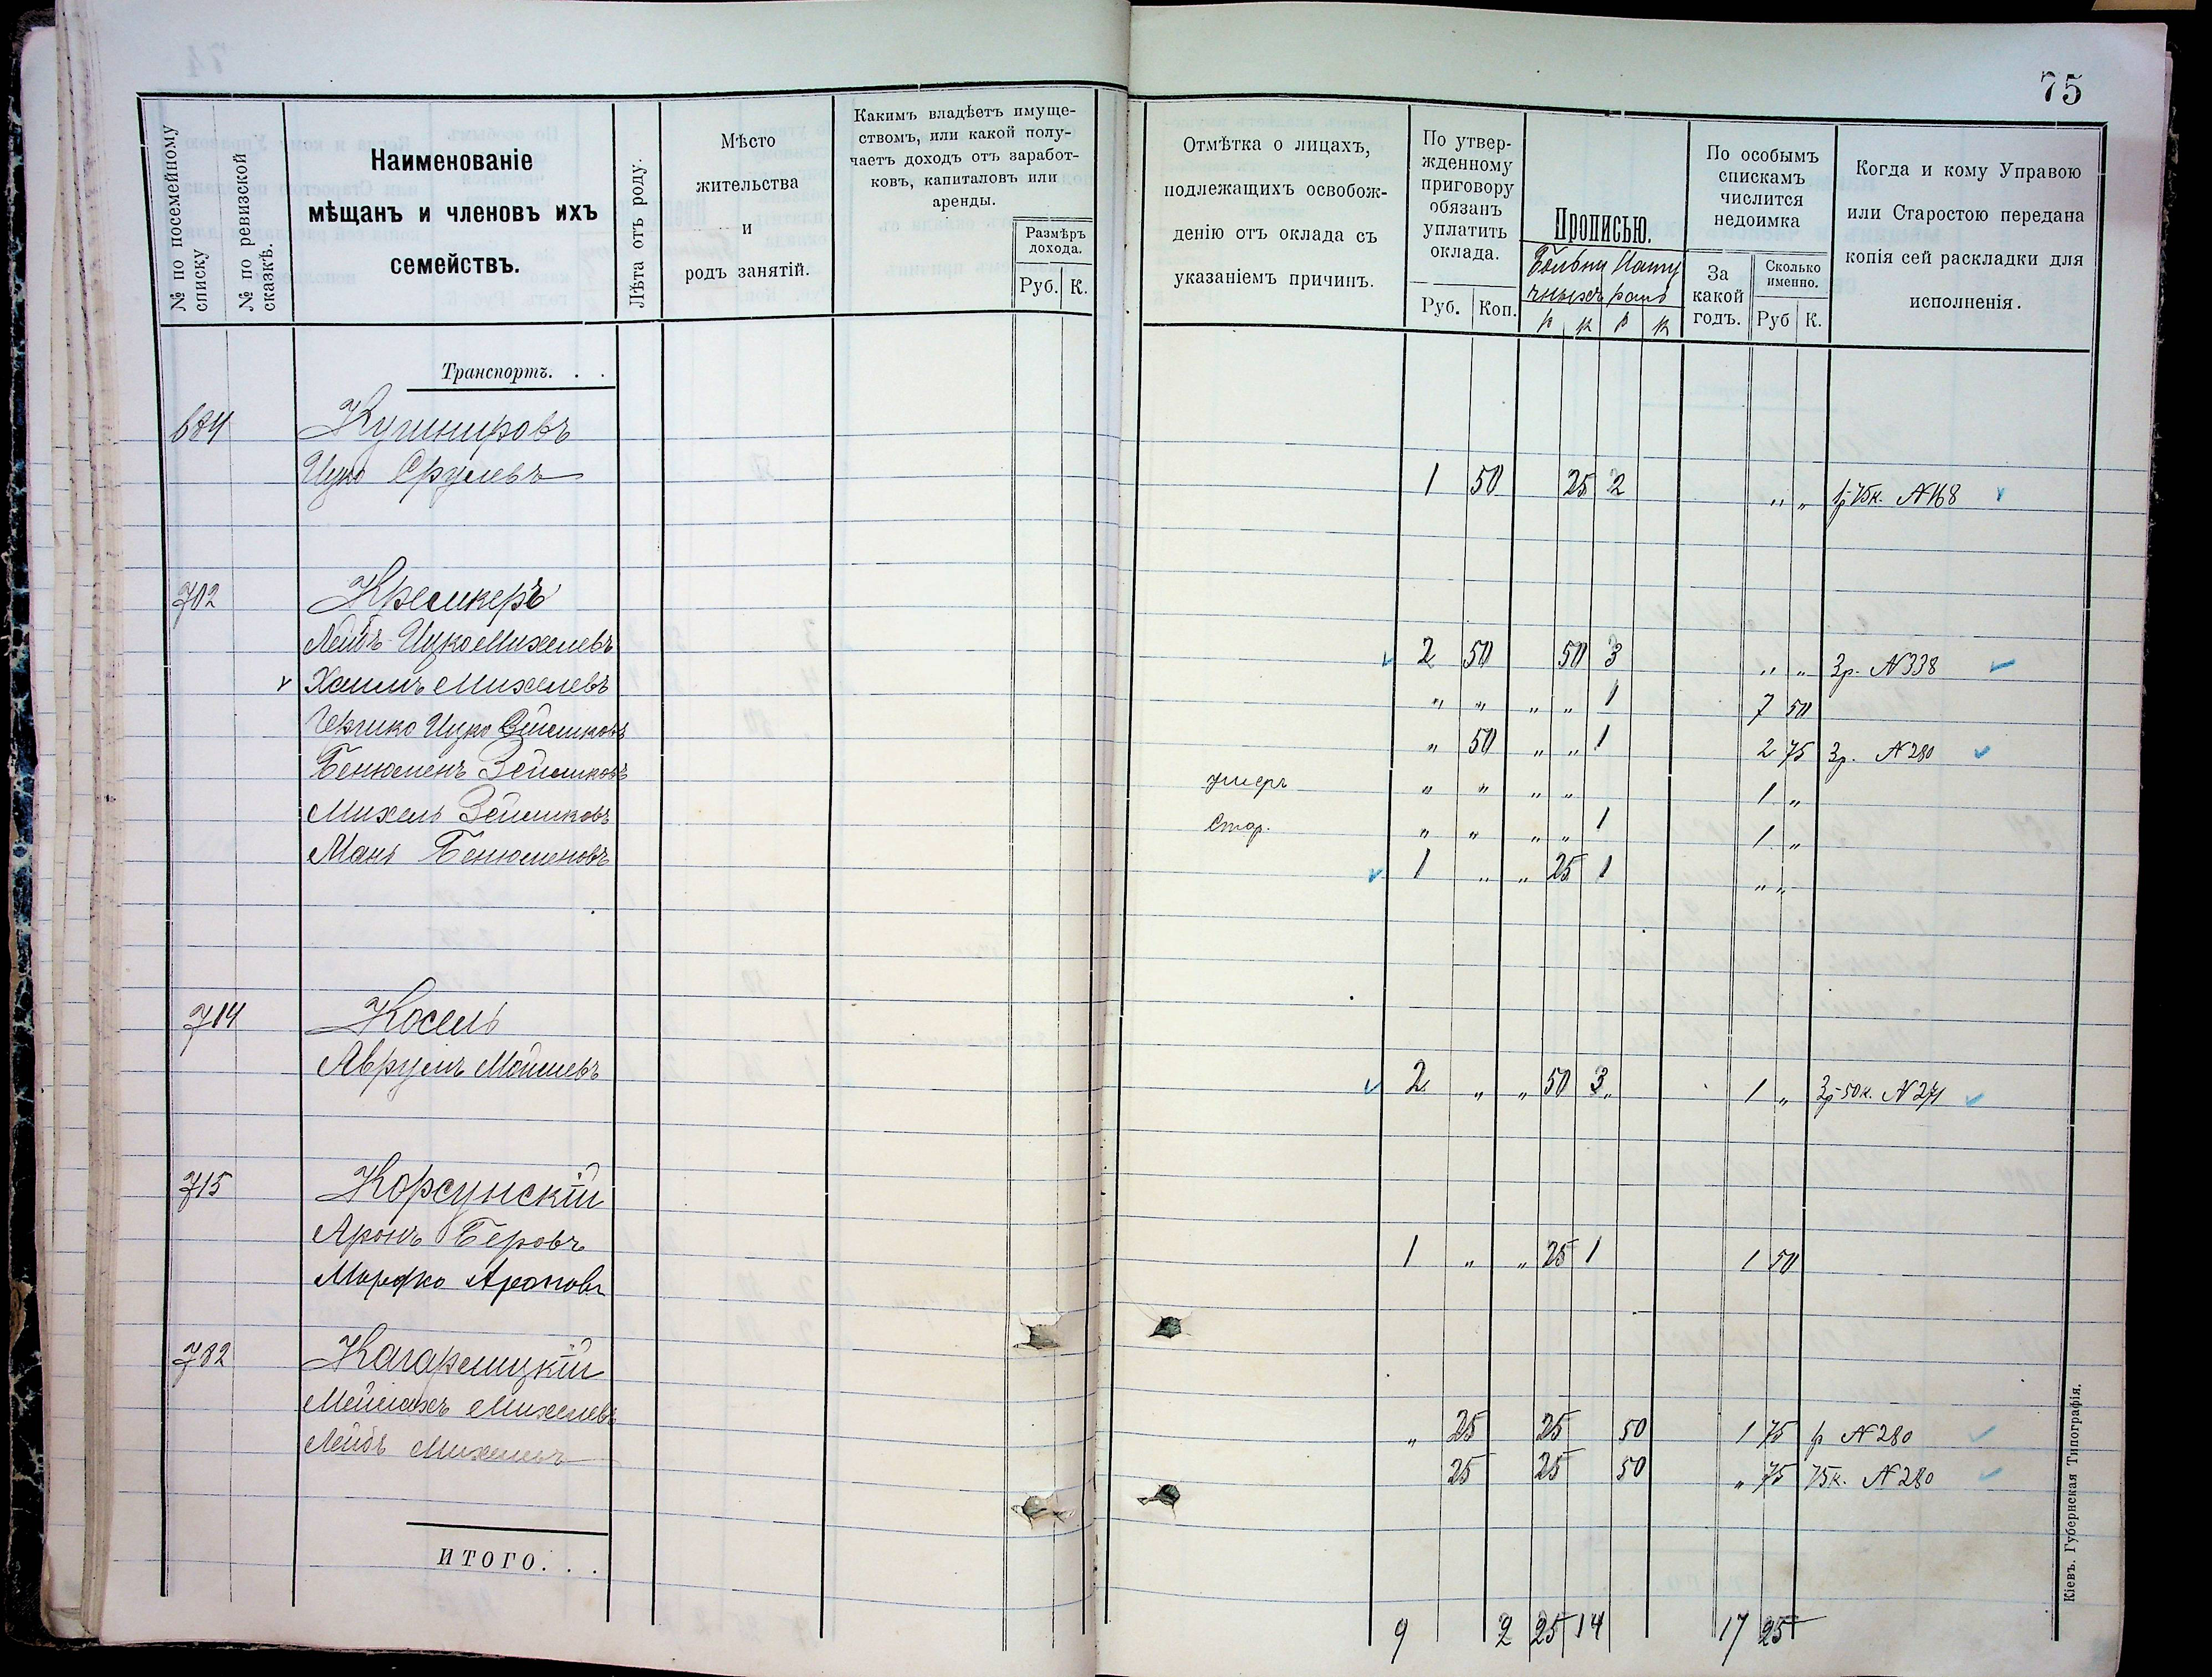 75
№ по посемейному списку
№ по ревизской сказкѣ.
Наименованіе
мѣщанъ и членовъ ихъ
семействъ.
Лѣта отъ роду.
Мѣсто
жительства
и
родъ занятій.
Какимъ владѣетъ имуще-
ствомъ, или какой полу-
чаетъ доходъ отъ заработ-
ковъ, капиталовъ или
аренды.
Размѣръ
дохода.
Руб. К.
Отмѣтка о лицахъ,
подлежащихъ освобож-
денію отъ оклада съ
указаніемъ причинъ.
По утвер-
жденному
приговору
обязанъ
уплатить
оклада.
Руб. Коп.
Прописью.
р к р к
По особымъ
спискамъ
числится
недоимка
За
какой
годъ.
Сколько
именно.
Руб К.
Когда и кому Управою
или Старостою передана
копія сей раскладки для
исполненія.
Транспортъ. . .
684 Кушнировъ
Ицко Срулевъ 1 50 25 2 „ „ 1р 75к. №168
702 Кремкеръ
Лейбъ-Ицко Михелевъ 2 50 50 3 „ „ 3р. №338
Хаимъ Михелевъ „ „ „ „ 1 7 50
Ицко Зейликовъ „ 50 „ „ 1 2 75 3р. №280
Бенюменъ Зейликовъ умеръ „ „ „ „ 1 „
Михель Зейликовъ Стар. „ „ „ „ 1 1 „
Мань Бенюменовъ 1 „ „ 25 1 „ „
714 Косель
Аврумъ Мошковъ 2 „ „ 50 3 „ 1 „ 3р 50к. №271
715 Корсунскій
Аронъ Беровъ 1 „ „ 25 1 1 50
Мордко Ароновъ
782 Кагарлицкій
Михелевъ „ 25 25 50 1 75 р №280
Лейбъ Михелевъ 25 25 50 „ 75 75к. №280
ИТОГО. . .
9 2 25 14 17 25
Кіевъ. Губернская Типографія.